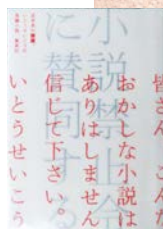 小説禁止令
に賛同する
皆さん、こん
おかしな小説は
ありはしません
信じて下さい。
いとうせいこう